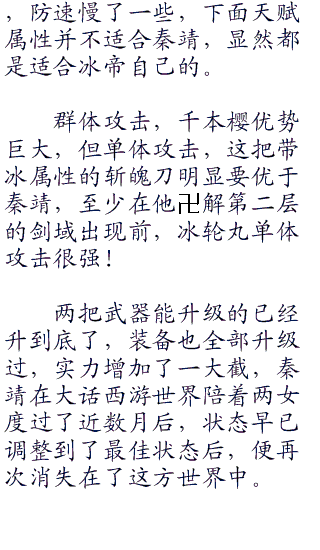 ，防速慢了一些，下面天赋
属性并不适合秦靖，显然都
是适合冰帝自己的。
群体攻击，千本樱优势
巨大，但单体攻击，这把带
冰属性的斩魄刀明显要优于
秦靖，至少在他卍解第二层
的剑域出现前，冰轮丸单体
攻击很强！
两把武器能升级的已经
升到底了，装备也全部升级
过，实力增加了一大截，秦
靖在大话西游世界陪着两女
度过了近数月后，状态早已
调整到了最佳状态后，便再
次消失在了这方世界中。